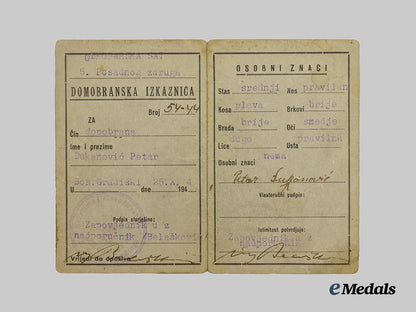 5. Posadnog zdruga
DOMOBRANSKA IZKAZNICA
Broj 54-44
ZA
Čin domobrana
Ime i prezime
Dukanović Petar
Bos.Gradiški 25.X. 4
U dne 194
Potpis starješine:
Zapovjednik u z
nadporučnik /Belaškovi
Vrijedi do opoziva
OSOBNI ZNACI
Stas srednji Nos pravilan
Kosa plava Brkovi brije
Brada brije Oči smedje
Lice dugo Usta pravilna
Osobni znaci nema
Petar
Vlastoručni podpis:
Istinitost potvrdjuje:
Zapovjednik u z
eMedals